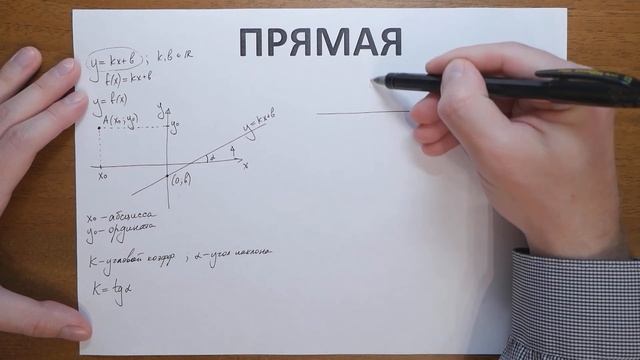 ПРЯМАЯ
y = kx+b ; k, b ∈ ℝ
f(x) = kx+b
y = f(x)
A(x₀; y₀)
y
y₀
y=kx+b
α
x₀
x
(0, b)
x₀ - абсцисса
y₀ - ордината
K - угловой коэфф , α - угол наклона
K = tg α